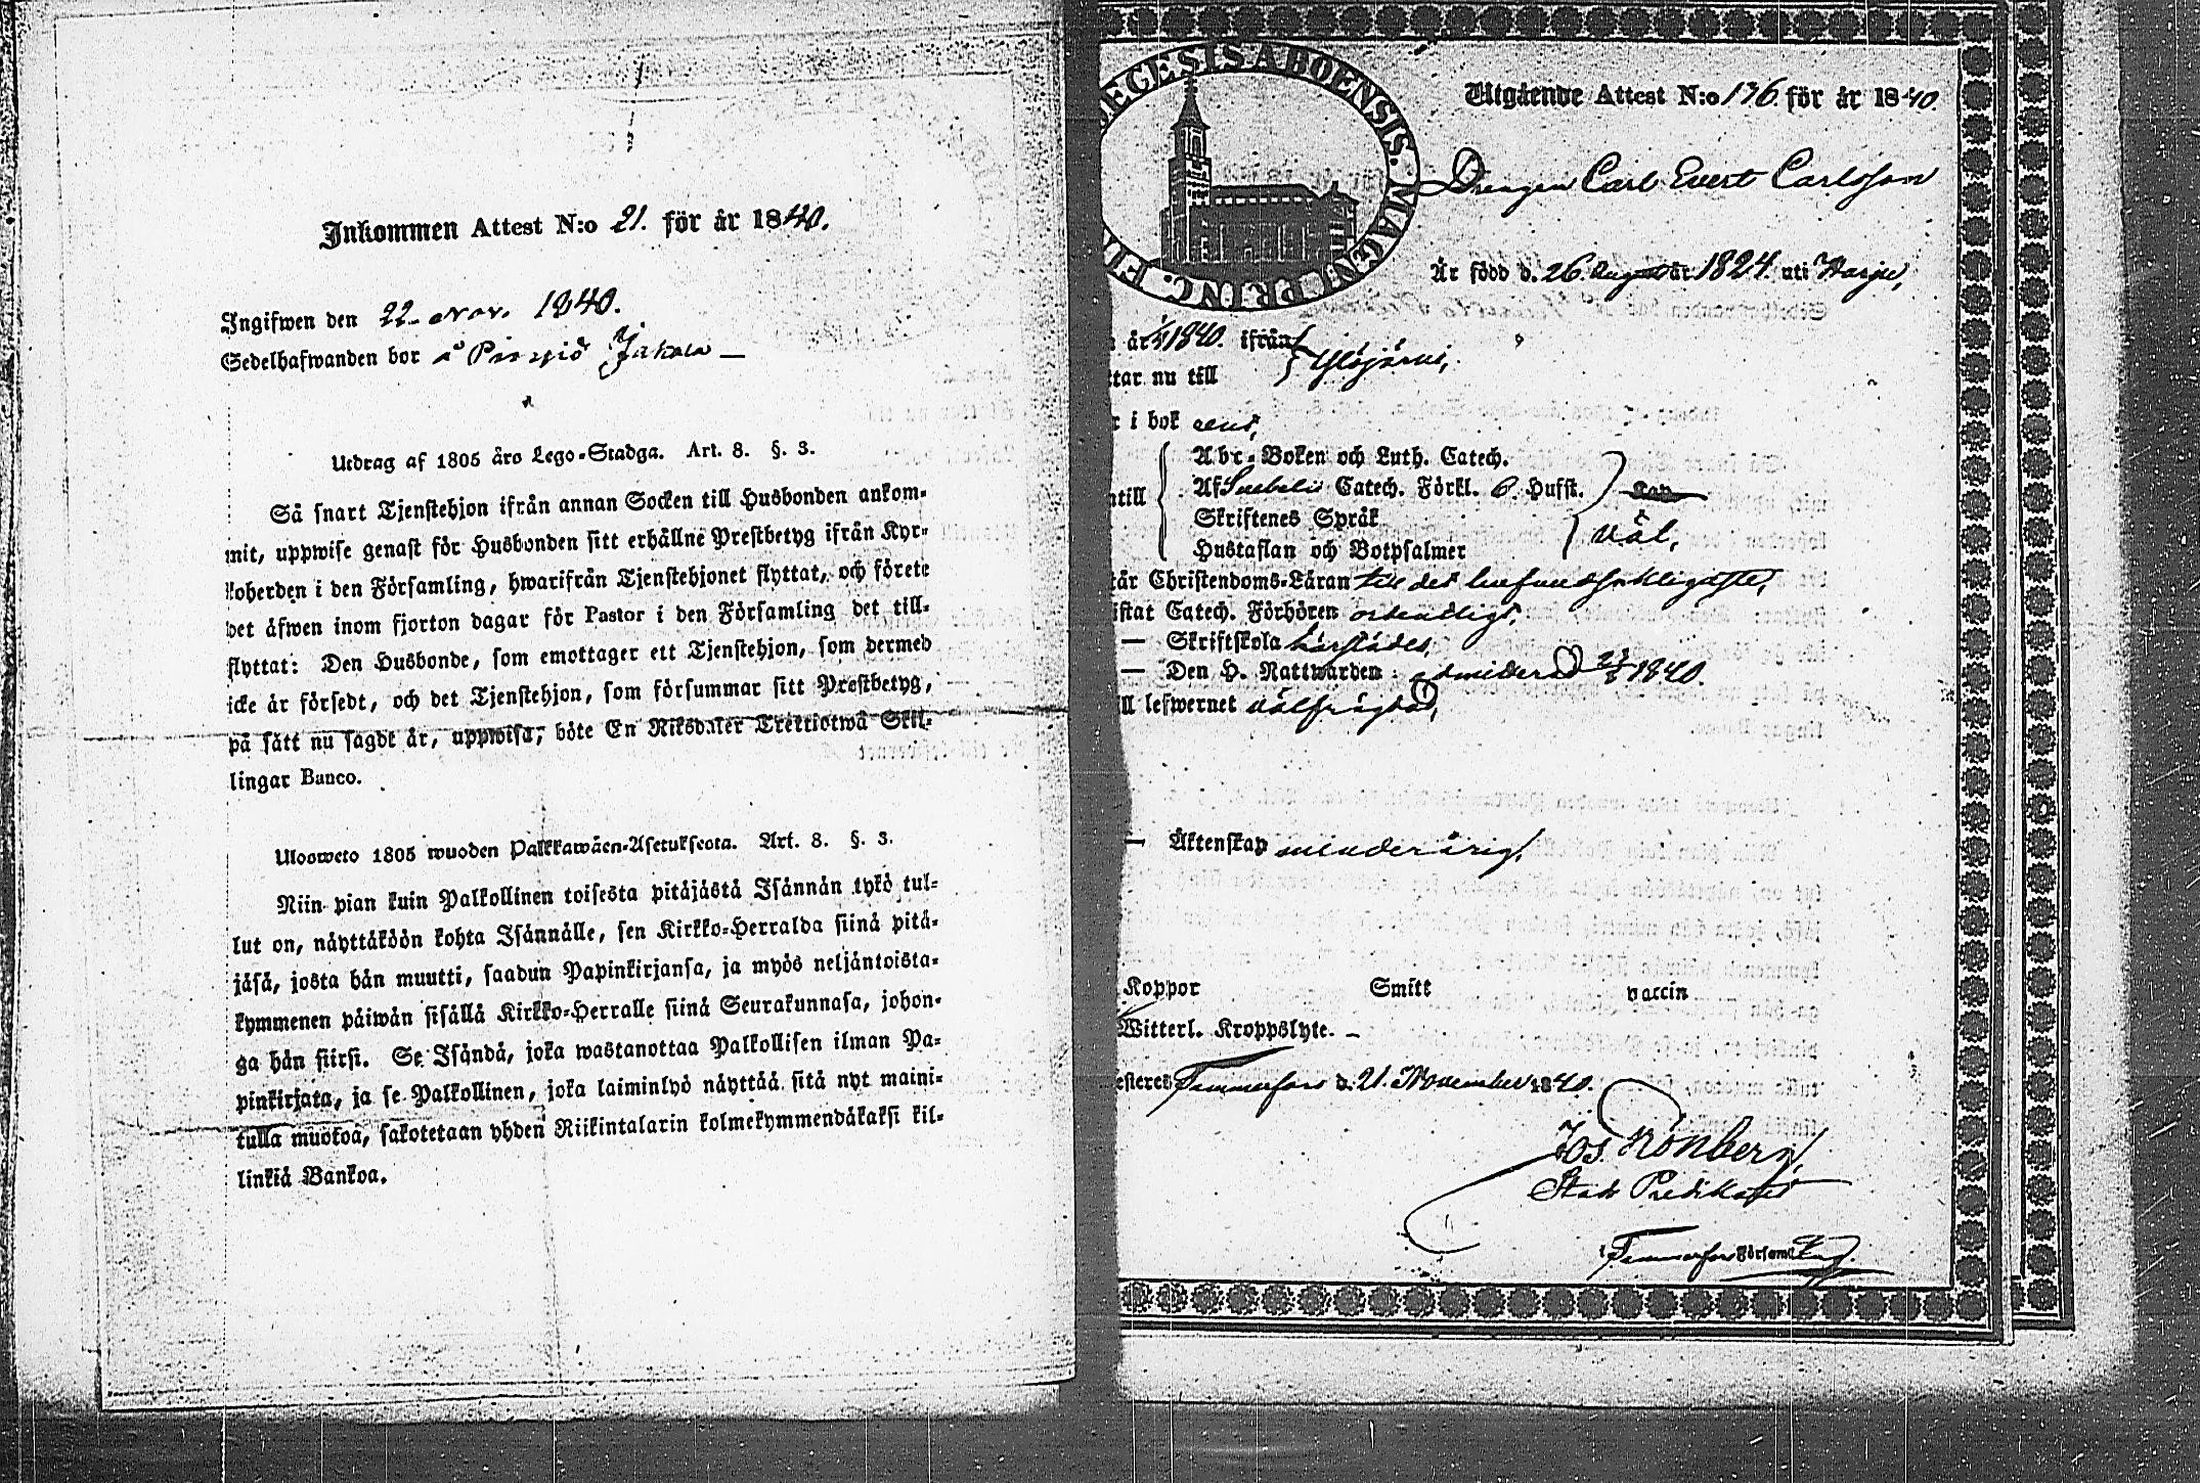 Inkommen Attest N:o 21. för år 1840.
Ingifwen den 22. Nov. 1840.
Sedelhafwanden bor å Pinsiö Jakala —
Utdrag af 1805 års Lego-Stadga. Art. 8. §. 3.
Så snart Tjenstehjon ifrån annan Socken till Husbonden ankom-
mit, uppwise genast för Husbonden sitt erhållne Prestbetyg ifrån Kyr-
koherden i den Församling, hwarifrån Tjenstehjonet flyttat, och förete
det äfwen inom fjorton dagar för Pastor i den Församling det till-
flyttat: Den Husbonde, som emottager ett Tjenstehjon, som dermed
icke är försedt, och det Tjenstehjon, som försummar sitt Prestbetyg,
på sätt nu sagdt är, uppwisa, böte En Riksdaler Trettiotwå Skil-
lingar Banco.
Ulosweto 1805 wuoden Palkkawäen-Asetuksesta. Art. 8. §. 3.
Niin pian kuin Palkollinen toisesta pitäjästä Isännän tykö tul-
lut on, näyttäköön kohta Isännälle, sen Kirkko-Herralda siinä pitä-
jäsä, josta hän muutti, saadun Papinkirjansa, ja myös neljäntoista-
kymmenen päiwän sisällä Kirkko-Herralle siinä Seurakunnasa, johon-
ga hän siirsi. Se Isändä, joka wastanottaa Palkollisen ilman Pa-
pinkirjata, ja se Palkollinen, joka laiminlyö näyttää sitä nyt maini-
tulla muotoa, sakotetaan yhden Riikintalarin kolmekymmendäkaksi kil-
linkiä Bankoa.
DECESIS ABOENSIS. MAGNI PRINC. FIN
Utgående Attest N:o 176. för år 1840.
Drengen Carl Evert Carlsson
Är född d. 26. August år 1824. uti Harju,
år 1840. ifrån
tar nu till Ylöjärvi,
r i bok rent,
Abc-Boken och Luth. Catech.
ntill Af Svebelii Catech. Förkl. o. Husft.
Skriftenes Språk
Hustaflan och Botpsalmer väl,
tår Christendoms-Läran till det
istat Catech. Förhören ordentligt,
— Skriftskola härstädes,
— Den H. Nattwarden: admitterad 1840.
ll lefwernet välfrägdad,
— Äktenskap minderårig,
Koppor Smitt vaccin
Witterl. Kroppslyte. —
esteras Tammerfors d. 21. November 1840.
Jos. Grönberg,
Stads Predikant
i Tammerfors Församl.